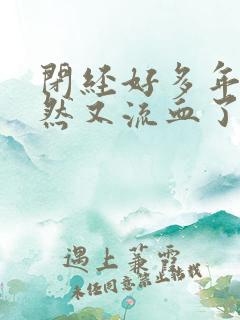 閉經好多年
然又流血了
遇上蒹霭
未经同意禁止转载